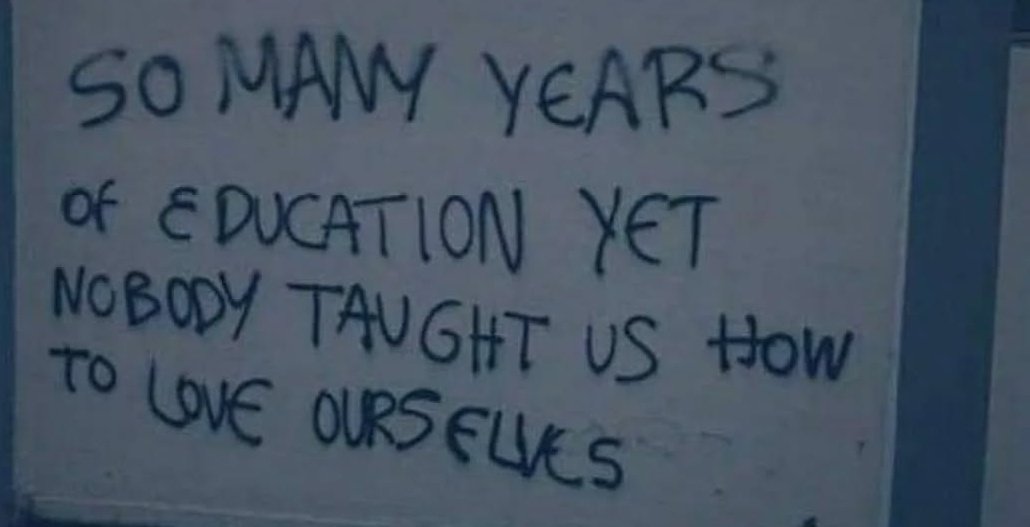 SO MANY YEARS
Of EDUCATION YET
NOBODY TAUGHT US HOW
TO LOVE OURSELVES